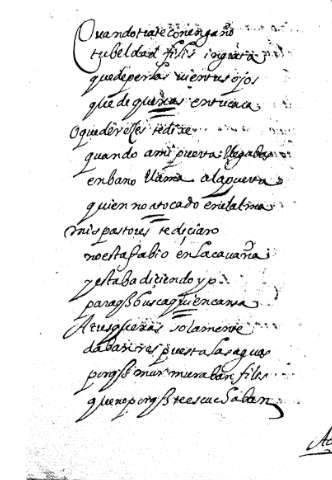 Quando trate con engaño
tu beldad filis ingrata
que de perlas vi en tus ojos
que de quexas en tu cara
O que de veçes te dixe
quando a mi puerta llegabas
en bano llama a la puerta
quien no a tocado en el alma
mis pastores te diçian
no esta fabio en la cavaña
y estaba diçiendo yo
para q̃ busca quien cansa
A tus quexas solamente
daban respuesta las aguas
porq̃ murmuraban filis
que no porq̃ te escuchaban